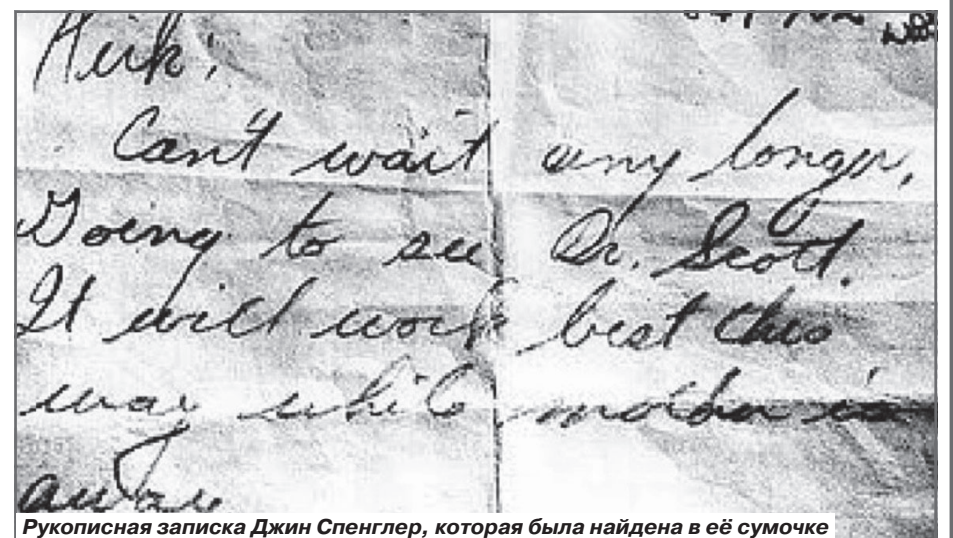 Kirk:
Can't wait any longer,
Going to see Dr. Scott.
It will work best this
way while mother is
away
Рукописная записка Джин Спенглер, которая была найдена в её сумочке